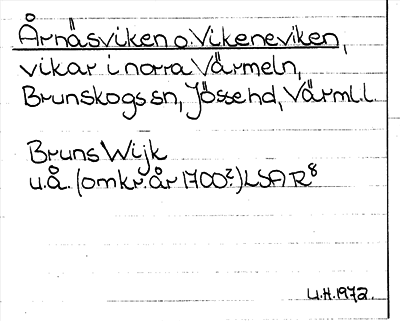 Årnäsviken o. Vikeneviken,
vikar i norra Värmeln,
Brunskogs sn, Jösse hd, Värml.l.
Bruns Wijk
u.å. (omkr. år 1700?) LSA R8
U.H. 1972.